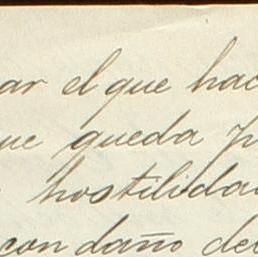 ar el que hac
ue queda p
hostilidad
con daño del